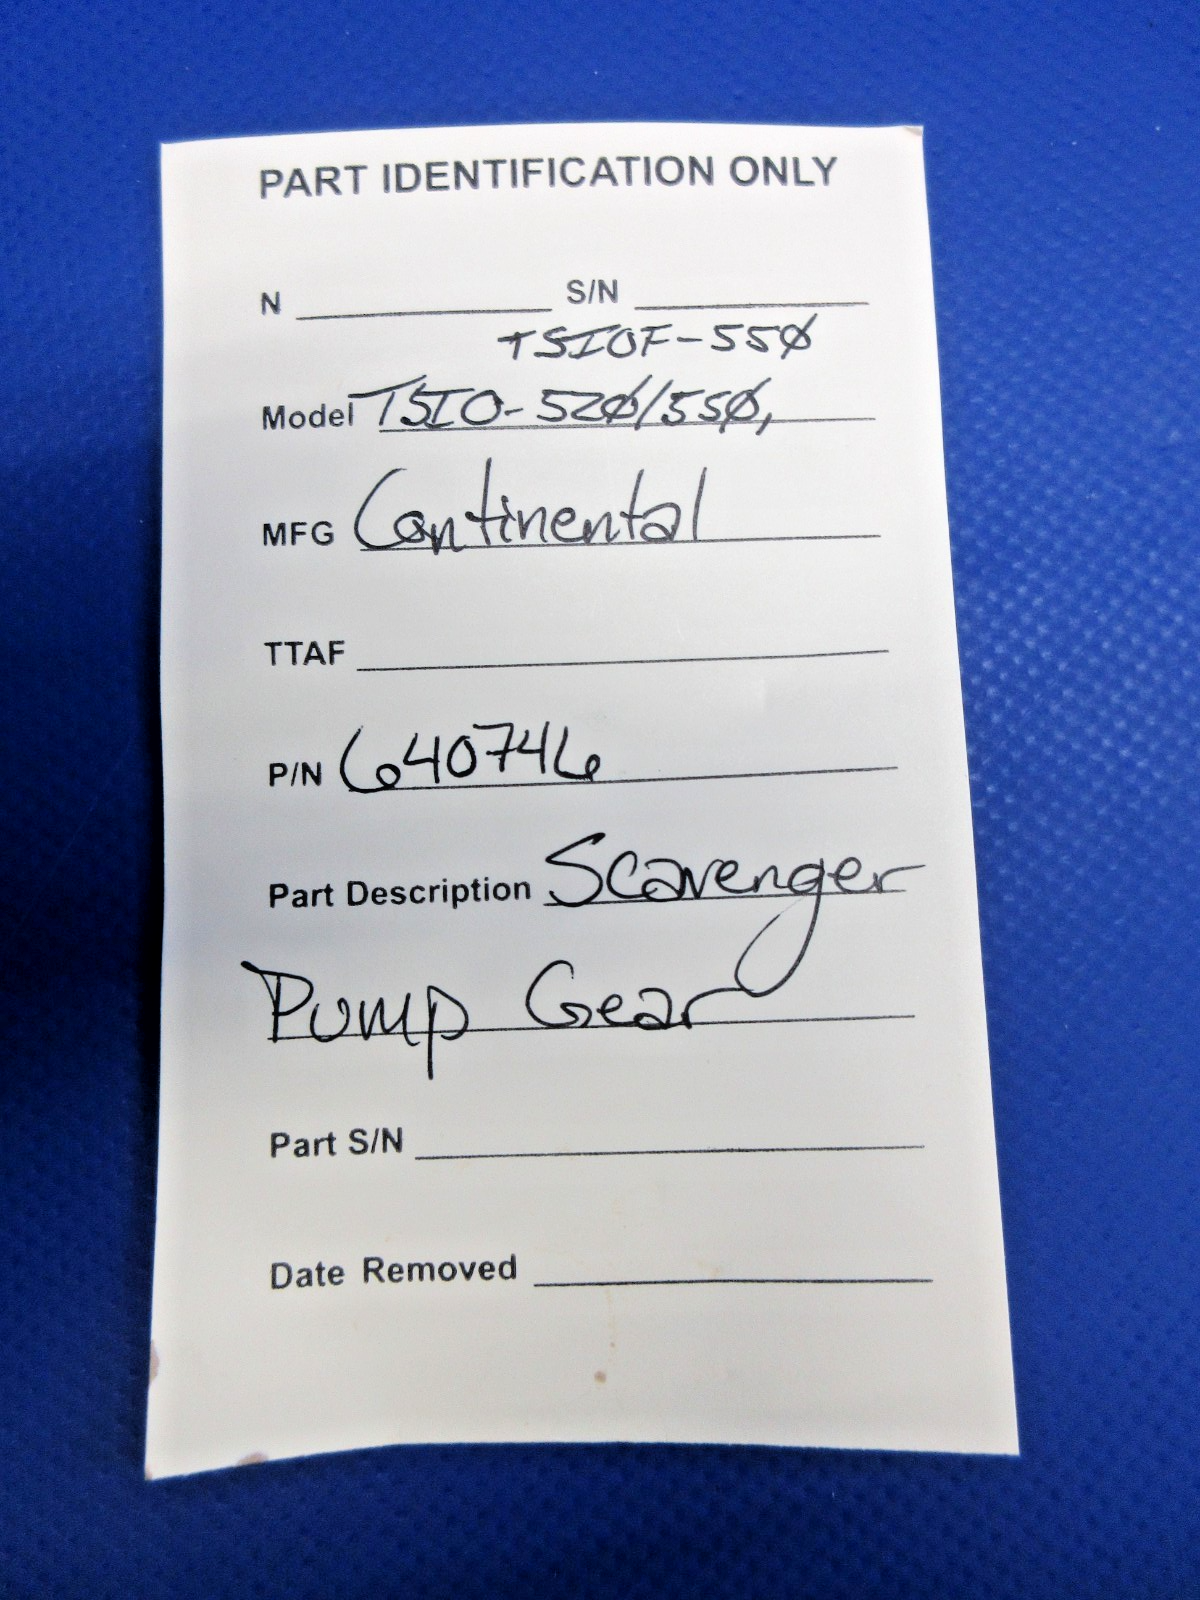 PART IDENTIFICATION ONLY
N S/N
TSIOF-550
Model TSIO-520/550,
MFG Continental
TTAF
P/N 640746
Part Description Scavenger
Pump Gear
Part S/N
Date Removed